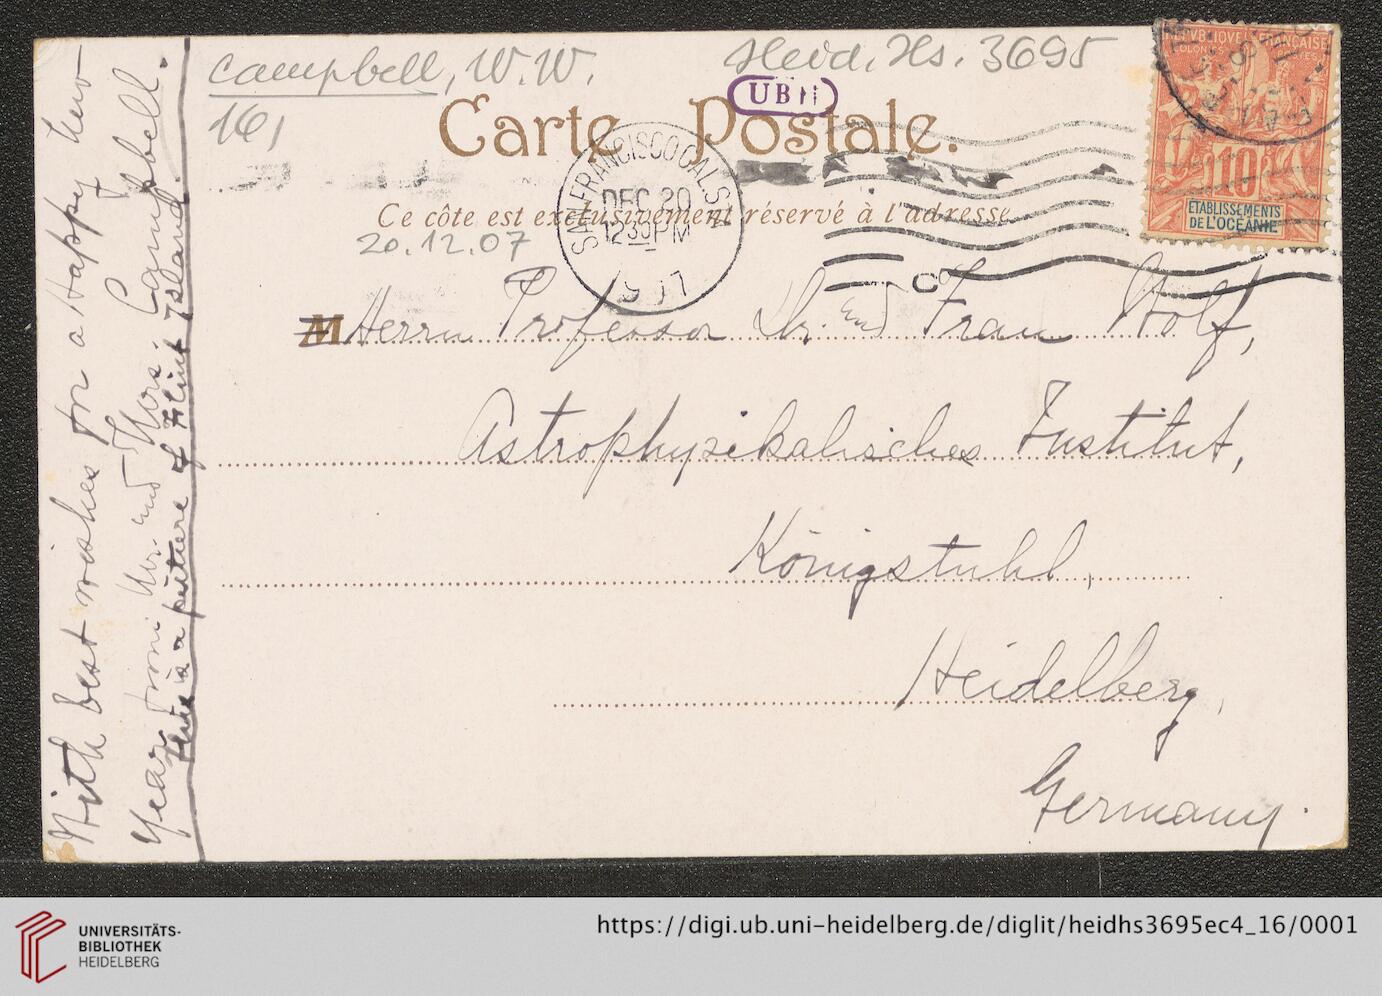 Campbell, W. W.
Heid. Hs. 3695
16,
UB H
Carte Postale.
SAN FRANCISCO CAL. STA
DEC 20
12 30 PM
1907
Ce côte est exclusivement réservé à l'adresse
20.12.07
REPUBLIQUE FRANÇAISE
COLONIES POSTES
10
ÉTABLISSEMENTS
DE L'OCÉANIE
M Herrn Professor Dr. und Frau Wolf,
Astrophysikalisches Institut,
Königstuhl,
Heidelberg,
Germany.
With best wishes for a Happy New
Year from Mr. and Mrs. Campbell.
This is a picture of Flint Island
UNIVERSITÄTS-
BIBLIOTHEK
HEIDELBERG
https://digi.ub.uni-heidelberg.de/diglit/heidhs3695ec4_16/0001